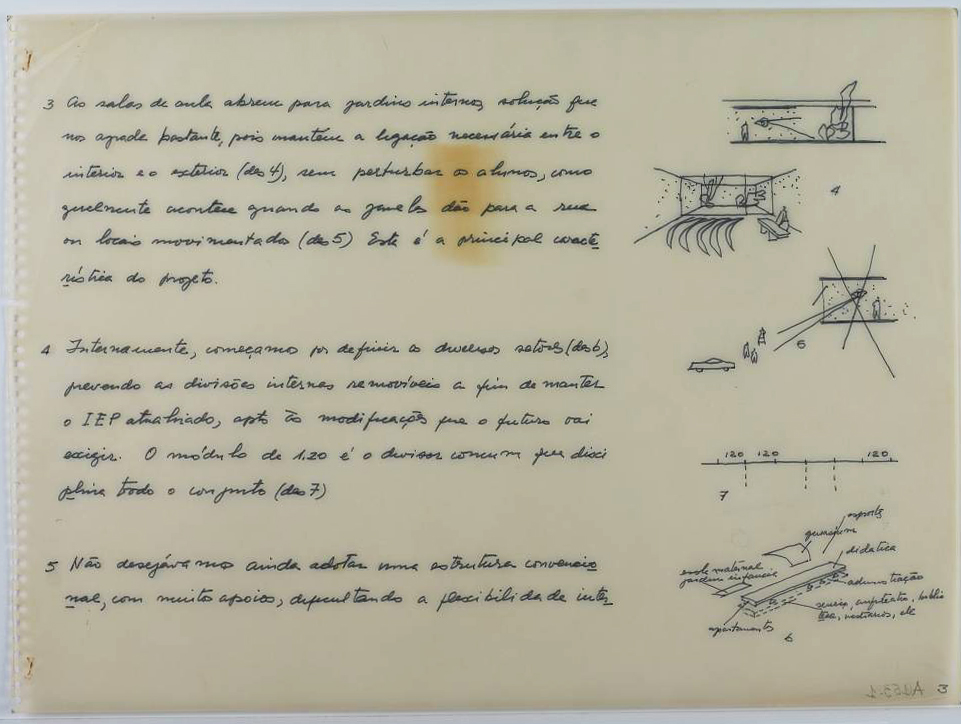 3 As salas de aula abrem para jardins internos, solução que
nos agrada bastante, pois mantém a ligação necessária entre o
interior e o exterior (des 4), sem perturbar os alunos, como
geralmente acontece quando as janelas dão para a rua
ou locais movimentados (des 5) Esta é a principal caracte
rística do projeto.
4 Internamente, começamos por definir os diversos setores (des 6),
prevendo as divisões internas removíveis a fim de manter
o IEP atualizado, apto às modificações que o futuro vai
exigir. O módulo de 1.20 é o divisor comum que disci
plina todo o conjunto (des 7)
5 Não desejávamos ainda adotar uma estrutura convencio
nal, com muitos apoios, dificultando a flexibilidade inter
4
5
120 120 120
7
esporte
ginásium
didática
escola maternal
jardim infância
administração
serviço, anfiteatro, biblio
teca, vestiários, etc
apartamentos
6
A153-1
3